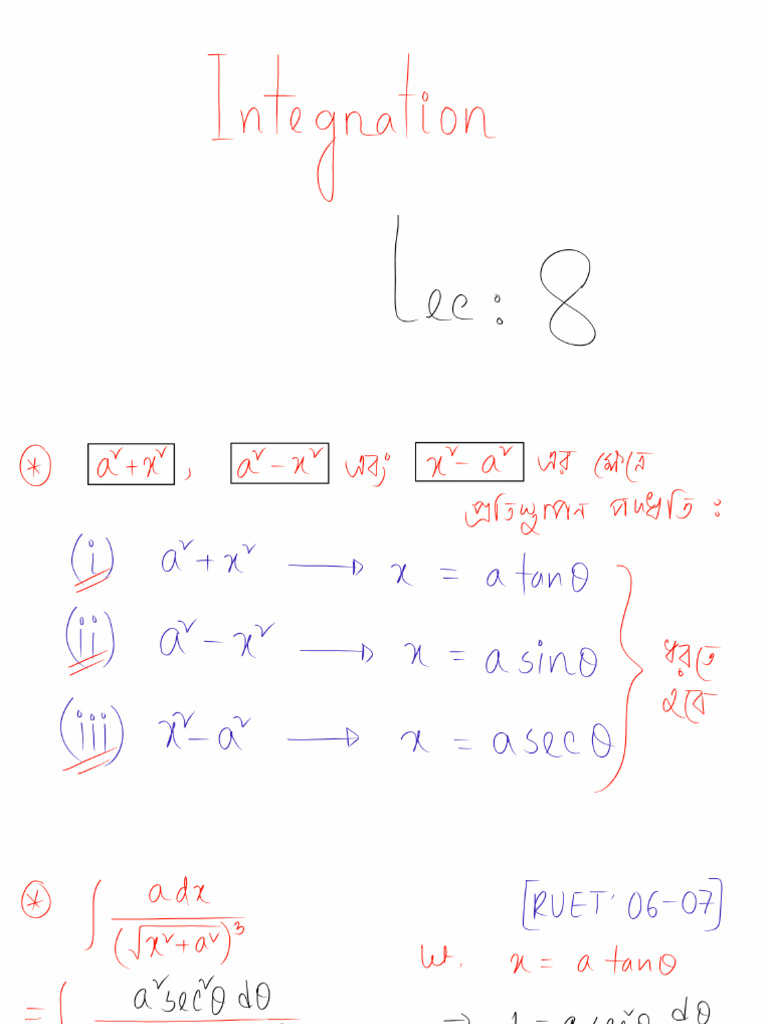 Integration
Lec: 8
* a² + x², a² - x² এবং x² - a² এর ক্ষেত্রে
প্রতিস্থাপন পদ্ধতি :
(i) a² + x² → x = a tanθ
(ii) a² - x² → x = a sinθ
(iii) x² - a² → x = a secθ
ধরতে
হবে
* ∫ a dx / (√(x² + a²))³ [RUET' 06-07]
let, x = a tanθ
= ∫ a² sec²θ dθ